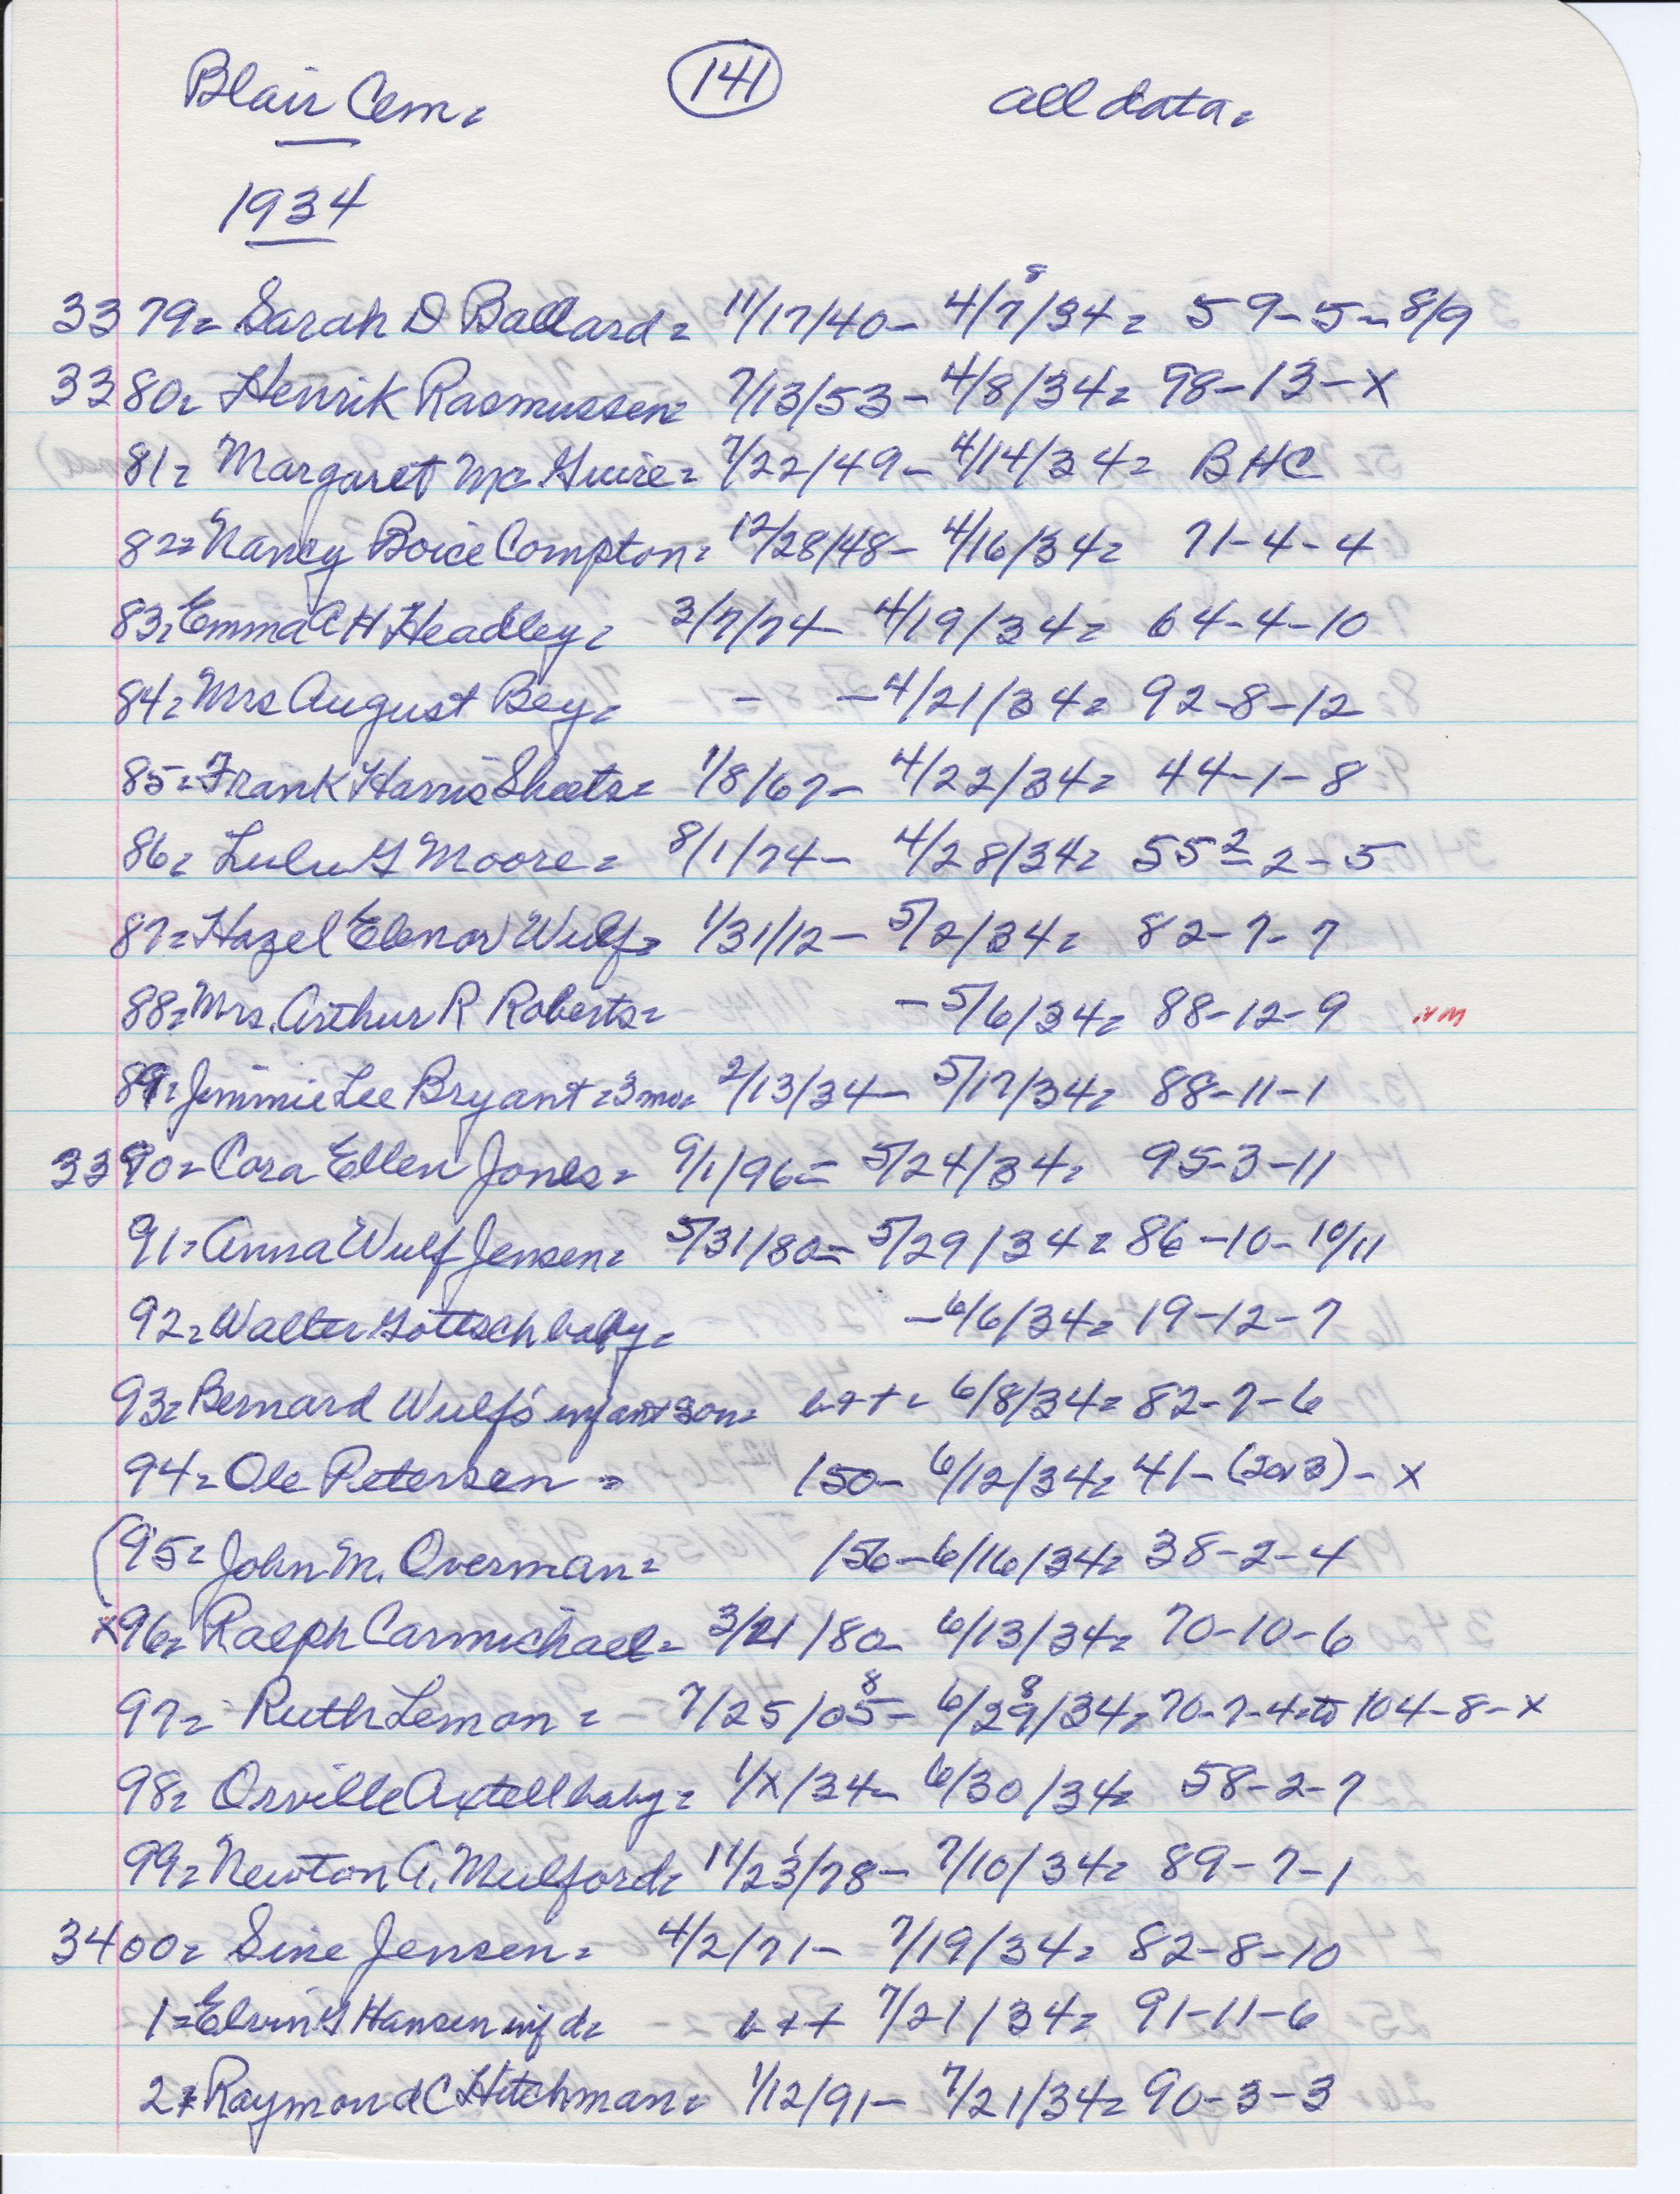 Blair Cem. 141 all data.
1934
3379= Sarah D Ballard= 11/17/40- 4/7/34= 59-5-8/9
8
3380= Henrik Rasmussen= 7/13/53- 4/8/34= 98-13-x
81= Margaret Mc Guire= 7/22/49- 4/14/34= BHC
82= Nancy Boice Compton= 12/28/48- 4/16/34= 71-4-4
83= Emma C H Headley= 3/7/74- 4/19/34= 64-4-10
84= Mrs August Bey= - -4/21/34= 92-8-12
85= Frank Harris Sheets= 1/8/67- 4/22/34= 44-1-8
86= Lulu G Moore= 8/1/74- 4/28/34= 55 2-2-5
87= Hazel Elenor Wulf= 1/31/12- 5/2/34= 82-7-7
88= Mrs. Arthur R Roberts= -5/6/34= 88-12-9
89= Jimmie Lee Bryant=3mo= 2/13/34- 5/17/34= 88-11-1
3390= Cora Ellen Jones= 9/1/96= 5/24/34= 95-3-11
91= Anna Wulf Jensen= 5/31/80= 5/29/34= 86-10-10/11
92= Walter Gottsch baby= -6/6/34= 19-12-7
93= Bernard Wulf's infant son= b++= 6/8/34= 82-7-6
94= Ole Petersen= 150- 6/12/34= 41-(2or3)-x
(95= John M. Overman= 156-6/16/34= 38-2-4
x96= Ralph Carmichael= 3/21/80- 6/13/34= 70-10-6
8 8
97= Ruth Lemon= 7/25/05- 6/29/34= 70-7-4=to 104-8-x
98= Orville Axtell baby= 1/x/34- 6/30/34= 58-2-7
99= Newton A. Mulford= 11/23/78- 7/10/34= 89-7-1
3400= Sine Jensen= 4/2/71- 7/19/34= 82-8-10
1= Elvin G Hansen inf d= b++ 7/21/34= 91-11-6
2= Raymond C Hitchman= 1/12/91- 7/21/34= 90-3-3